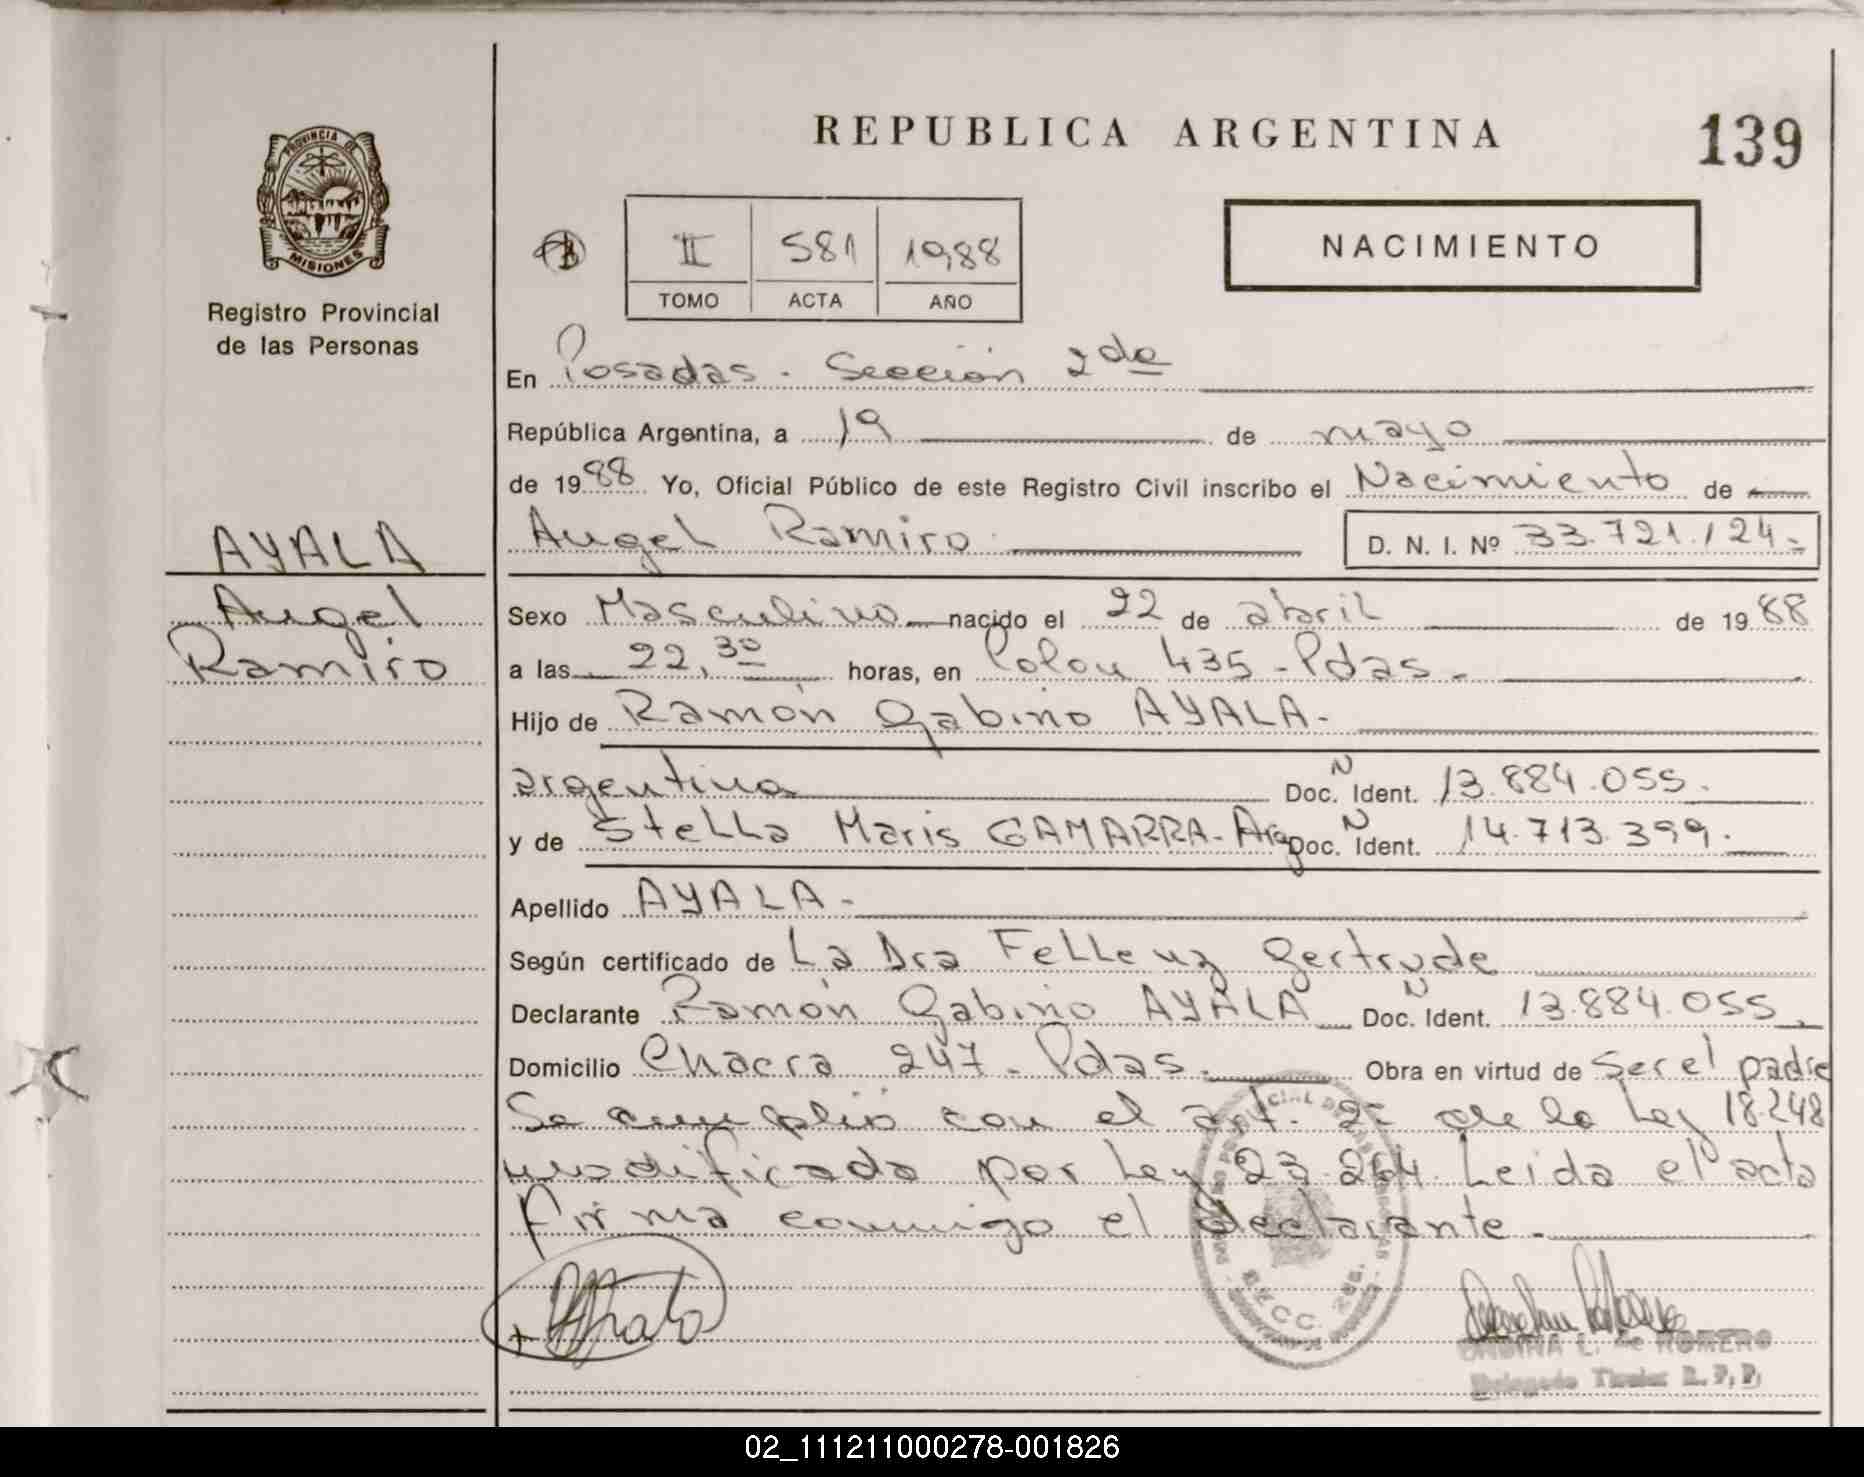 REPUBLICA ARGENTINA
139
PROVINCIA DE
MISIONES
Registro Provincial
de las Personas
II 581 1988
TOMO ACTA AÑO
NACIMIENTO
En Posadas - Sección 2da
República Argentina, a 19 de mayo
de 1988 Yo, Oficial Público de este Registro Civil inscribo el Nacimiento de
Angel Ramiro D. N. I. Nº 33.721.124-
AYALA
Angel
Ramiro
Sexo Masculino nacido el 22 de abril de 1988
a las 22,30 horas, en Colon 435 - Pdas.
Hijo de Ramón Gabino AYALA-
argentina Doc. N Ident. 13.884.055.
y de Stella Maris GAMARRA- Arg Doc. N Ident. 14.713.399.
Apellido AYALA-
Según certificado de La Dra Gertrude
Declarante Ramón Gabino AYALA Doc. N Ident. 13.884.055.
Domicilio Chacra 247 - Pdas. Obra en virtud de ser el padre
Se cumplió con el art. 2º de la Ley 18.248
modificada por Ley 23.264. Leida el acta
firma conmigo el declarante.-
L. de ROMERO
Delegado Titular R. P. P.
02_111211000278-001826